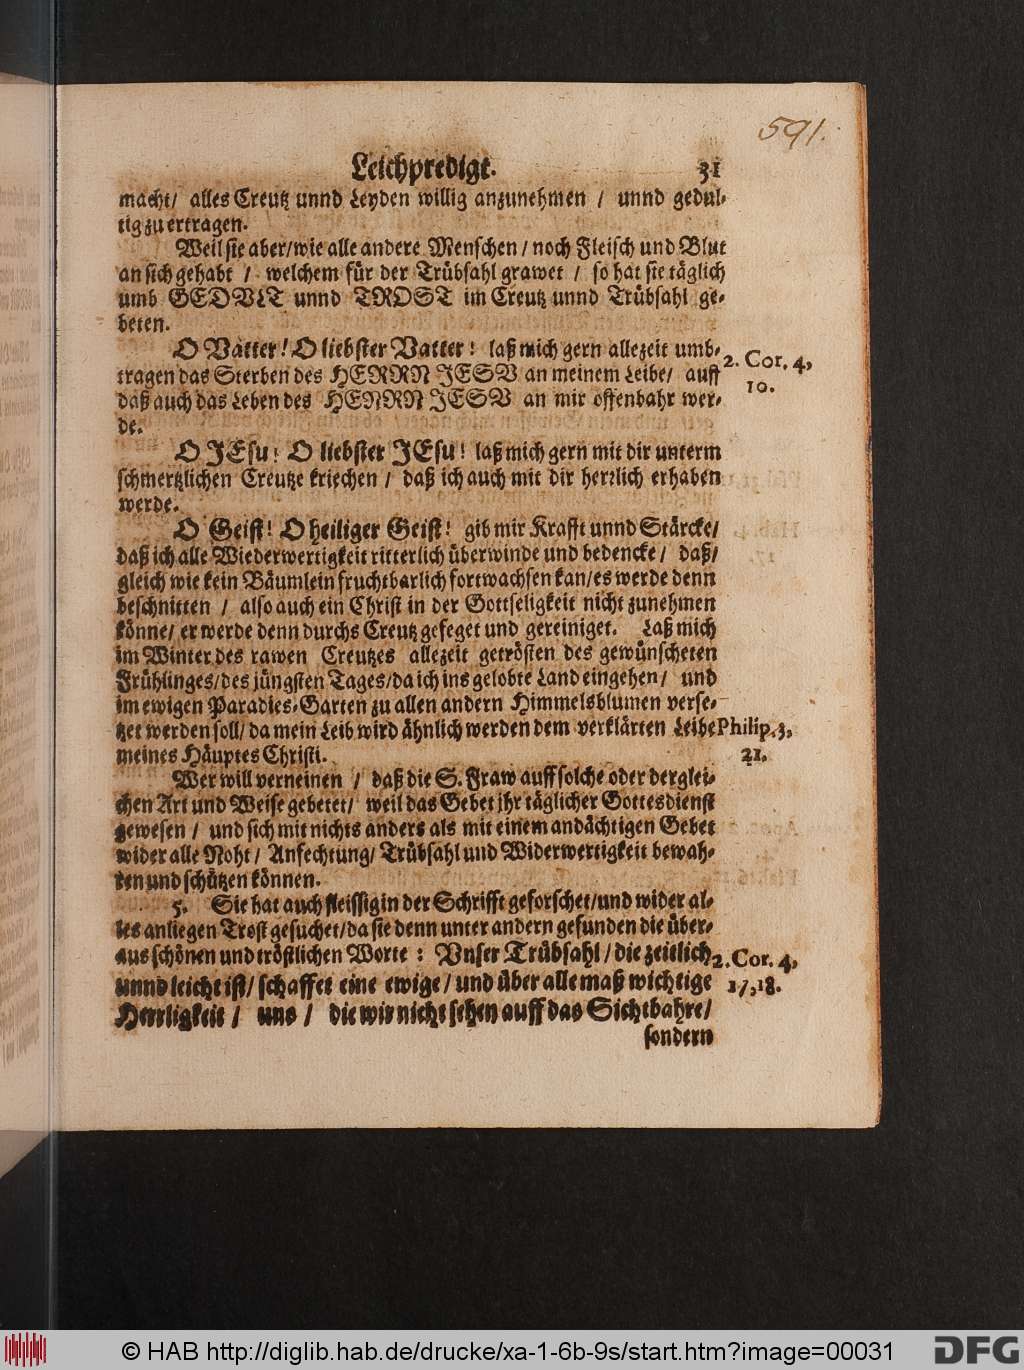 591.
Leichpredigt. 31
macht/ alles Creutz unnd Leyden willig anzunehmen / unnd gedul-
tig zu ertragen.
Weil sie aber/wie alle andere Menschen/noch Fleisch und Blut
an sich gehabt / welchem für der Trübsahl grawet / so hat sie täglich
umb GEDVLT unnd TROST im Creutz unnd Trübsahl ge-
beten.
O Vatter! O liebster Vatter! laß mich gern allezeit umb-
2. Cor. 4,
tragen das Sterben des HERRN JESV an meinem Leibe/ auff
10.
daß auch das Leben des HERRN JESV an mir offenbahr wer-
de.
O JEsu! O liebster JEsu! laß mich gern mit dir unterm
schmertzlichen Creutze kriechen / daß ich auch mit dir herrlich erhaben
werde.
O Geist! O heiliger Geist! gib mir Krafft unnd Stärcke/
daß ich alle Wiederwertigkeit ritterlich überwinde und bedencke/ daß/
gleich wie kein Bäumlein fruchtbarlich fortwachsen kan/es werde denn
beschnitten / also auch ein Christ in der Gottseligkeit nicht zunehmen
könne/ er werde denn durchs Creutz gefeget und gereiniget. Laß mich
im Winter des rawen Creutzes allezeit getrösten des gewünscheten
Frühlinges/des jüngsten Tages/da ich ins gelobte Land eingehen/ und
im ewigen Paradies-Garten zu allen andern Himmelsblumen verse-
tzet werden soll/ da mein Leib wird ähnlich werden dem verklärten Leibe
Philip. 3,
meines Häuptes Christi.
21.
Wer will verneinen / daß die S. Fraw auff solche oder derglei-
chen Art und Weise gebetet/ weil das Gebet jhr täglicher Gottesdienst
gewesen / und sich mit nichts anders als mit einem andächtigen Gebet
wider alle Noht/ Anfechtung/ Trübsahl und Widerwertigkeit bewah-
ren und schützen können.
5. Sie hat auch fleissig in der Schrifft geforschet/und wider al-
les anliegen Trost gesuchet/da sie denn unter andern gefunden die über-
aus schönen und tröstlichen Worte: Vnser Trübsahl/die zeitlich
2. Cor. 4,
unnd leicht ist/ schaffet eine ewige/ und über alle maß wichtige
17, 18.
Herrligkeit/ uns/ die wir nicht sehen auff das Sichtbahre/
sondern
© HAB http://diglib.hab.de/drucke/xa-1-6b-9s/start.htm?image=00031
DFG